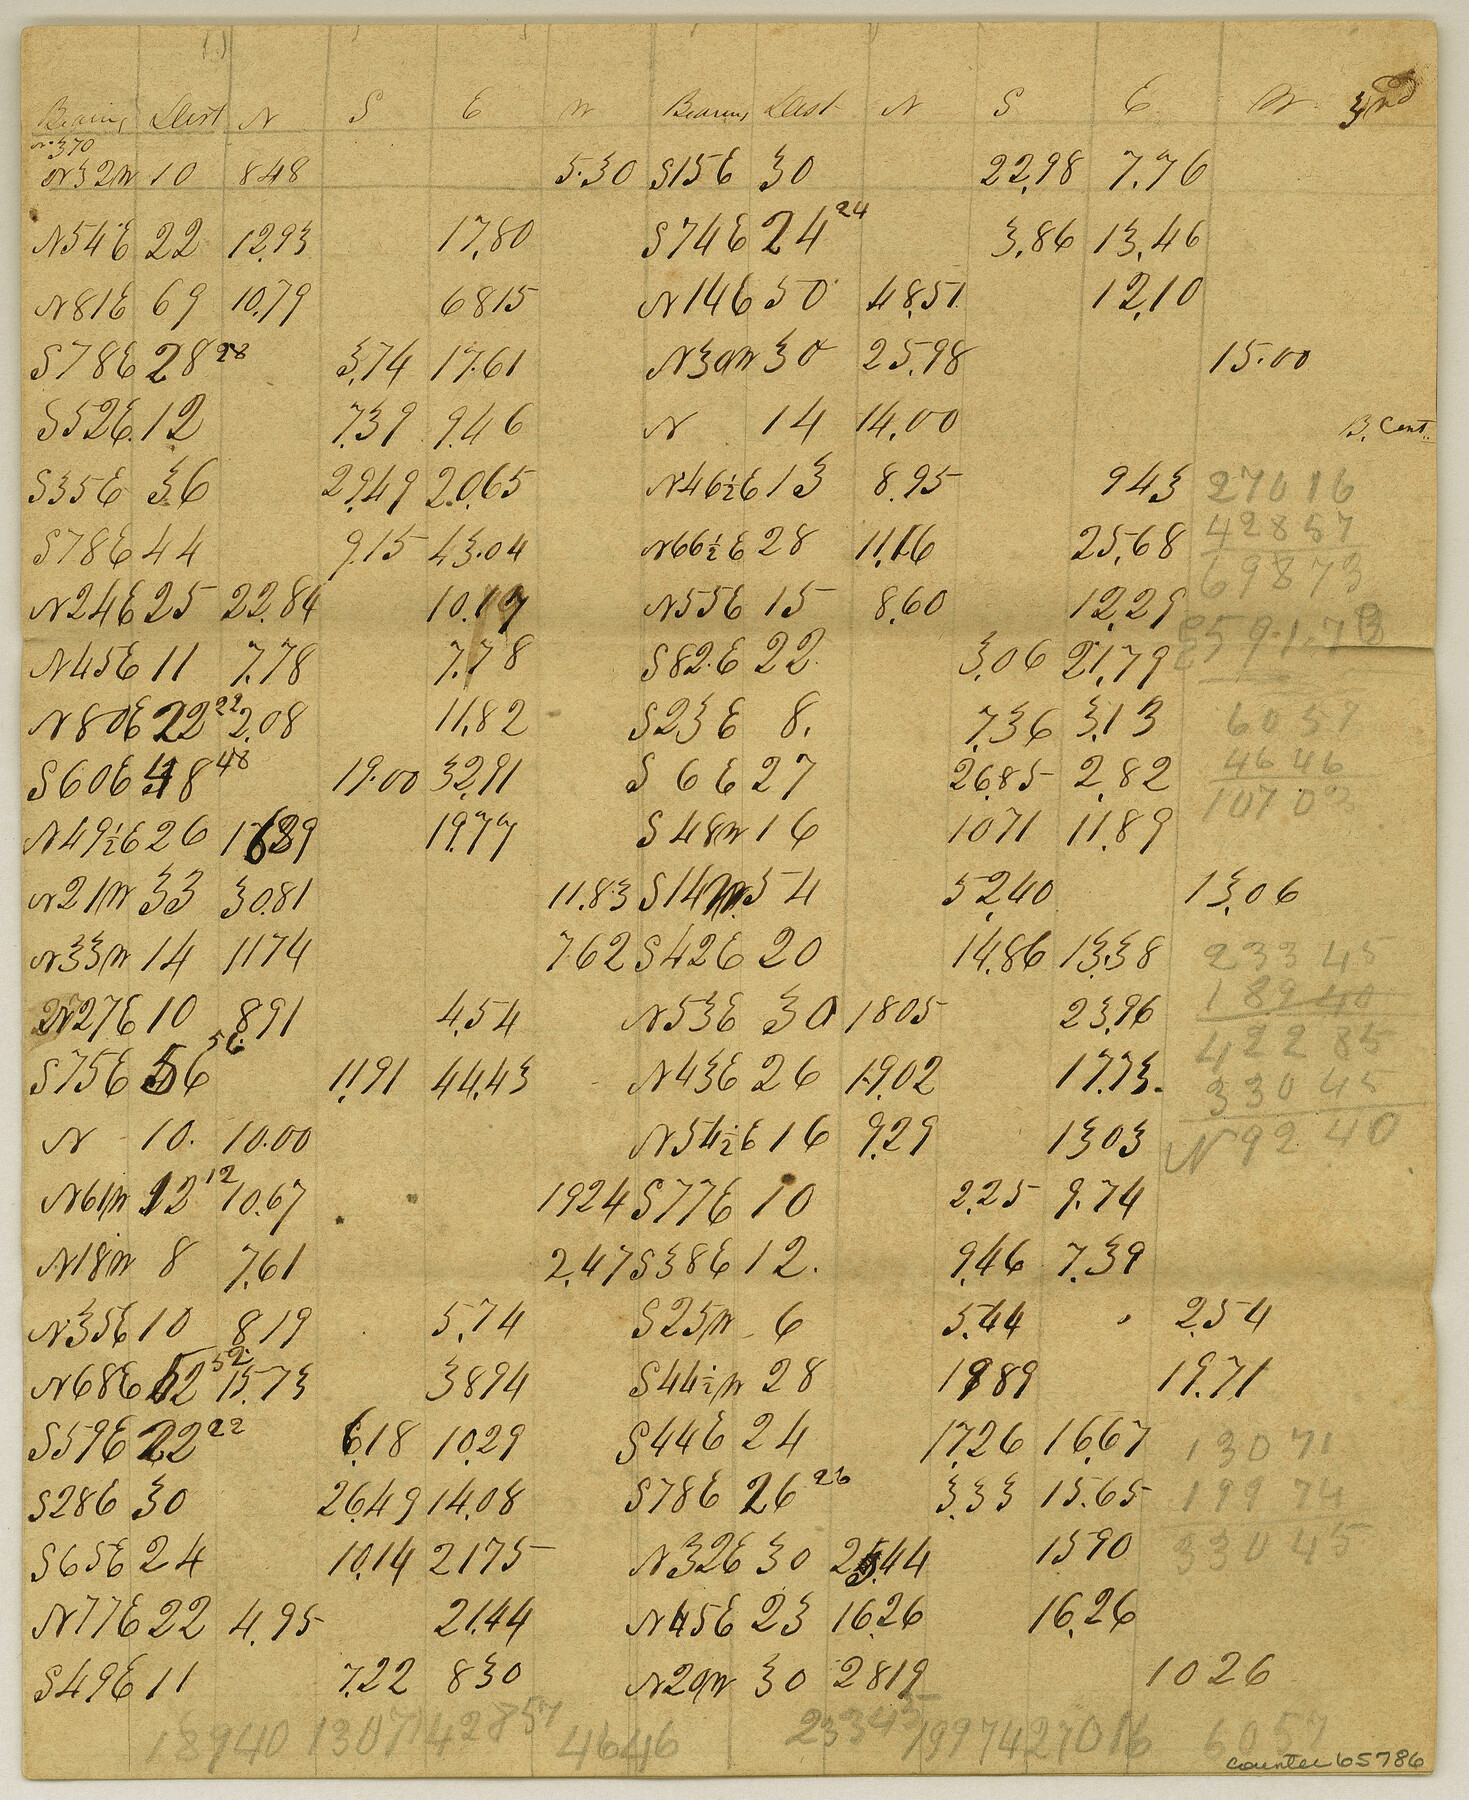 Bearing Dist N S E W Bearing Dist N S E W 2nd
No 370
N32W 10 848 5.30 S15E 30 22,98 7.76
N54E 22 12,93 17,80 S74E 24 24 3,86 13,46
N81E 69 10,79 6815 N14E 50 48,51 12,10
S78E 28 28 3,74 17.61 N30W 30 25,98 15.00
S52E 12 7,39 9.46 N 14 14,00
B. Cont.
S35E 36 29,49 20,65 N46½E 13 8.95 943 27016
S78E 44 9,15 43.04 N66½E 28 11,16 25,68 42857
69873
N24E 25 22.84 10.17 N55E 15 8.60 12,29
E 591.73
N45E 11 7,78 7.78 S82E 22 3,06 21,79
N80E 22 22 2,08 11,82 S23E 8. 7,36 3,13 6057
S60E 48 48 19.00 32,91 S 6 E 27 26,85 2,82 4646
10703
N49½E 26 1689 19,77 S48W 16 1071 11,89
N21W 33 30.81 11.83 S14W 54 52,40 13,06
N33W 14 1174 762 S42E 20 14,86 13,38 23345
18940
N27E 10 891 4,54 N53E 30 1805 23,96
42285
S75E 56 56 11,91 44,43 N43E 26 19,02 17.73. 33045
N 10. 10.00 N54½E 16 9.29 1303 N 92 40
N61W 12 12 10.67 1924 S77E 10 2,25 9.74
N18W 8 7.61 2,47 S38E 12. 9,46 7.39
N35E 10 819 5,74 S25W 6 5.44 254
N68E 52 52 15.73 3894 S44½W 28 1989 19.71
S59E 22 22 6,18 1029 S44E 24 17,26 16,67 13071
S28E 30 26,49 14,08 S78E 26 26 3.33 15.65 19974
S65E 24 10,14 2175 N32E 30 25,44 1590 33045
N77E 22 4.95 21.44 N45E 23 16.26 16.26
S49E 11 7.22 830 N20W 30 2819 1026
18940 13071 42857 4646 23345 19974 27016 6057
counter 65786